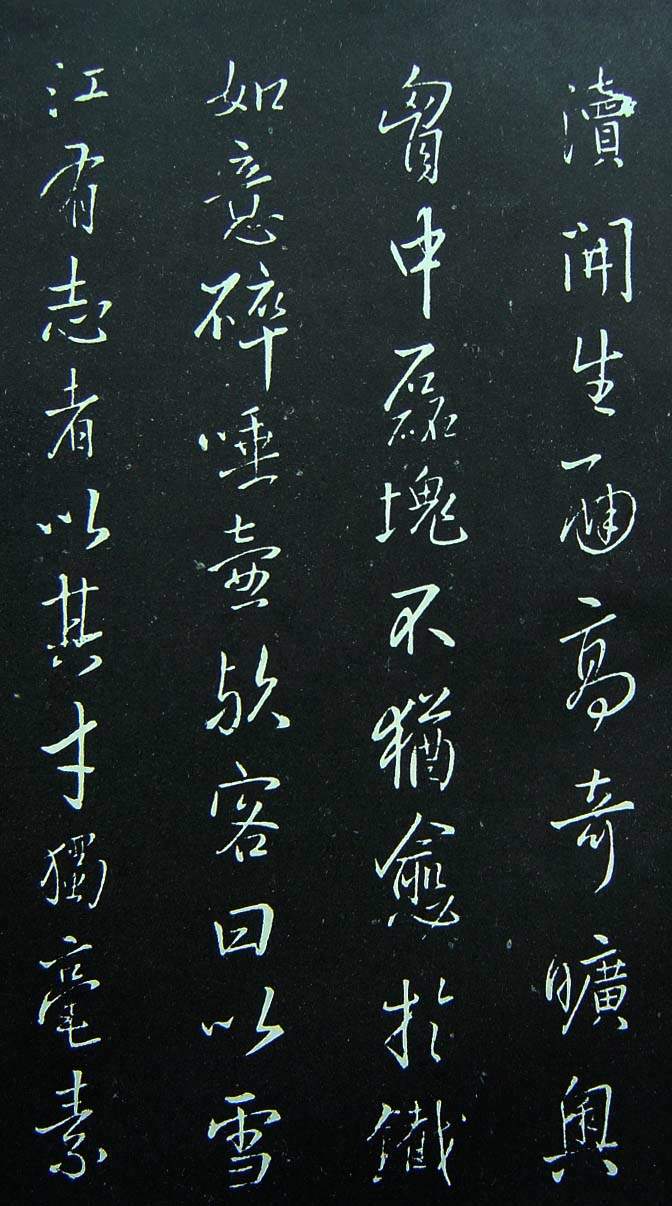 瀆開生面高奇曠奧
胷中磊塊不猶愈於鐵
如意碎唾壺歟客曰以雪
江有志者以其才獨毫素